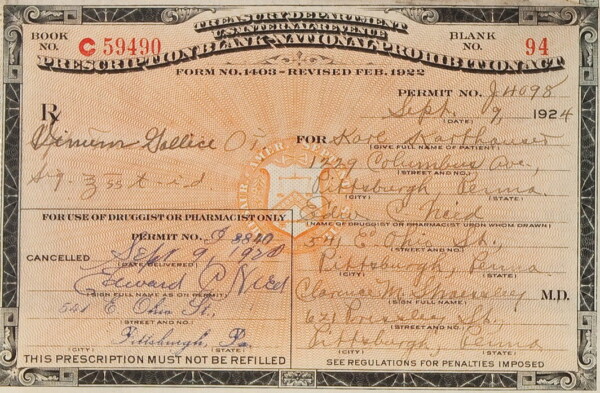 TREASURY DEPARTMENT
U.S. INTERNAL REVENUE
BOOK NO. C 59490
BLANK NO. 94
PRESCRIPTION BLANK-NATIONAL PROHIBITION ACT
FORM NO. 1403 - REVISED FEB. 1922
PERMIT NO. J4098
Sept. 9, 1924
(DATE)
℞
FOR Karl
(GIVE FULL NAME OF PATIENT)
1229 Columbus Ave,
(STREET AND NO.)
Pittsburgh, Penna.
(CITY) (STATE)
Edw C Nied
(NAME OF DRUGGIST OR PHARMACIST UPON WHOM DRAWN)
541 E Ohio St,
(STREET AND NO.)
Pittsburgh, Penna.
(CITY) (STATE)
Clarence M. M.D.
(SIGN FULL NAME)
621 Pressley St,
(STREET AND NO.)
Pittsburgh, Penna
(CITY) (STATE)
SEE REGULATIONS FOR PENALTIES IMPOSED
FOR USE OF DRUGGIST OR PHARMACIST ONLY
PERMIT NO. 8840
CANCELLED Sept 9, 192
(DATE DELIVERED)
Edward C Nied
(SIGN FULL NAME AS ON PERMIT)
541 E Ohio St.,
(STREET AND NO.)
Pittsburgh, Pa.
(CITY) (STATE)
THIS PRESCRIPTION MUST NOT BE REFILLED